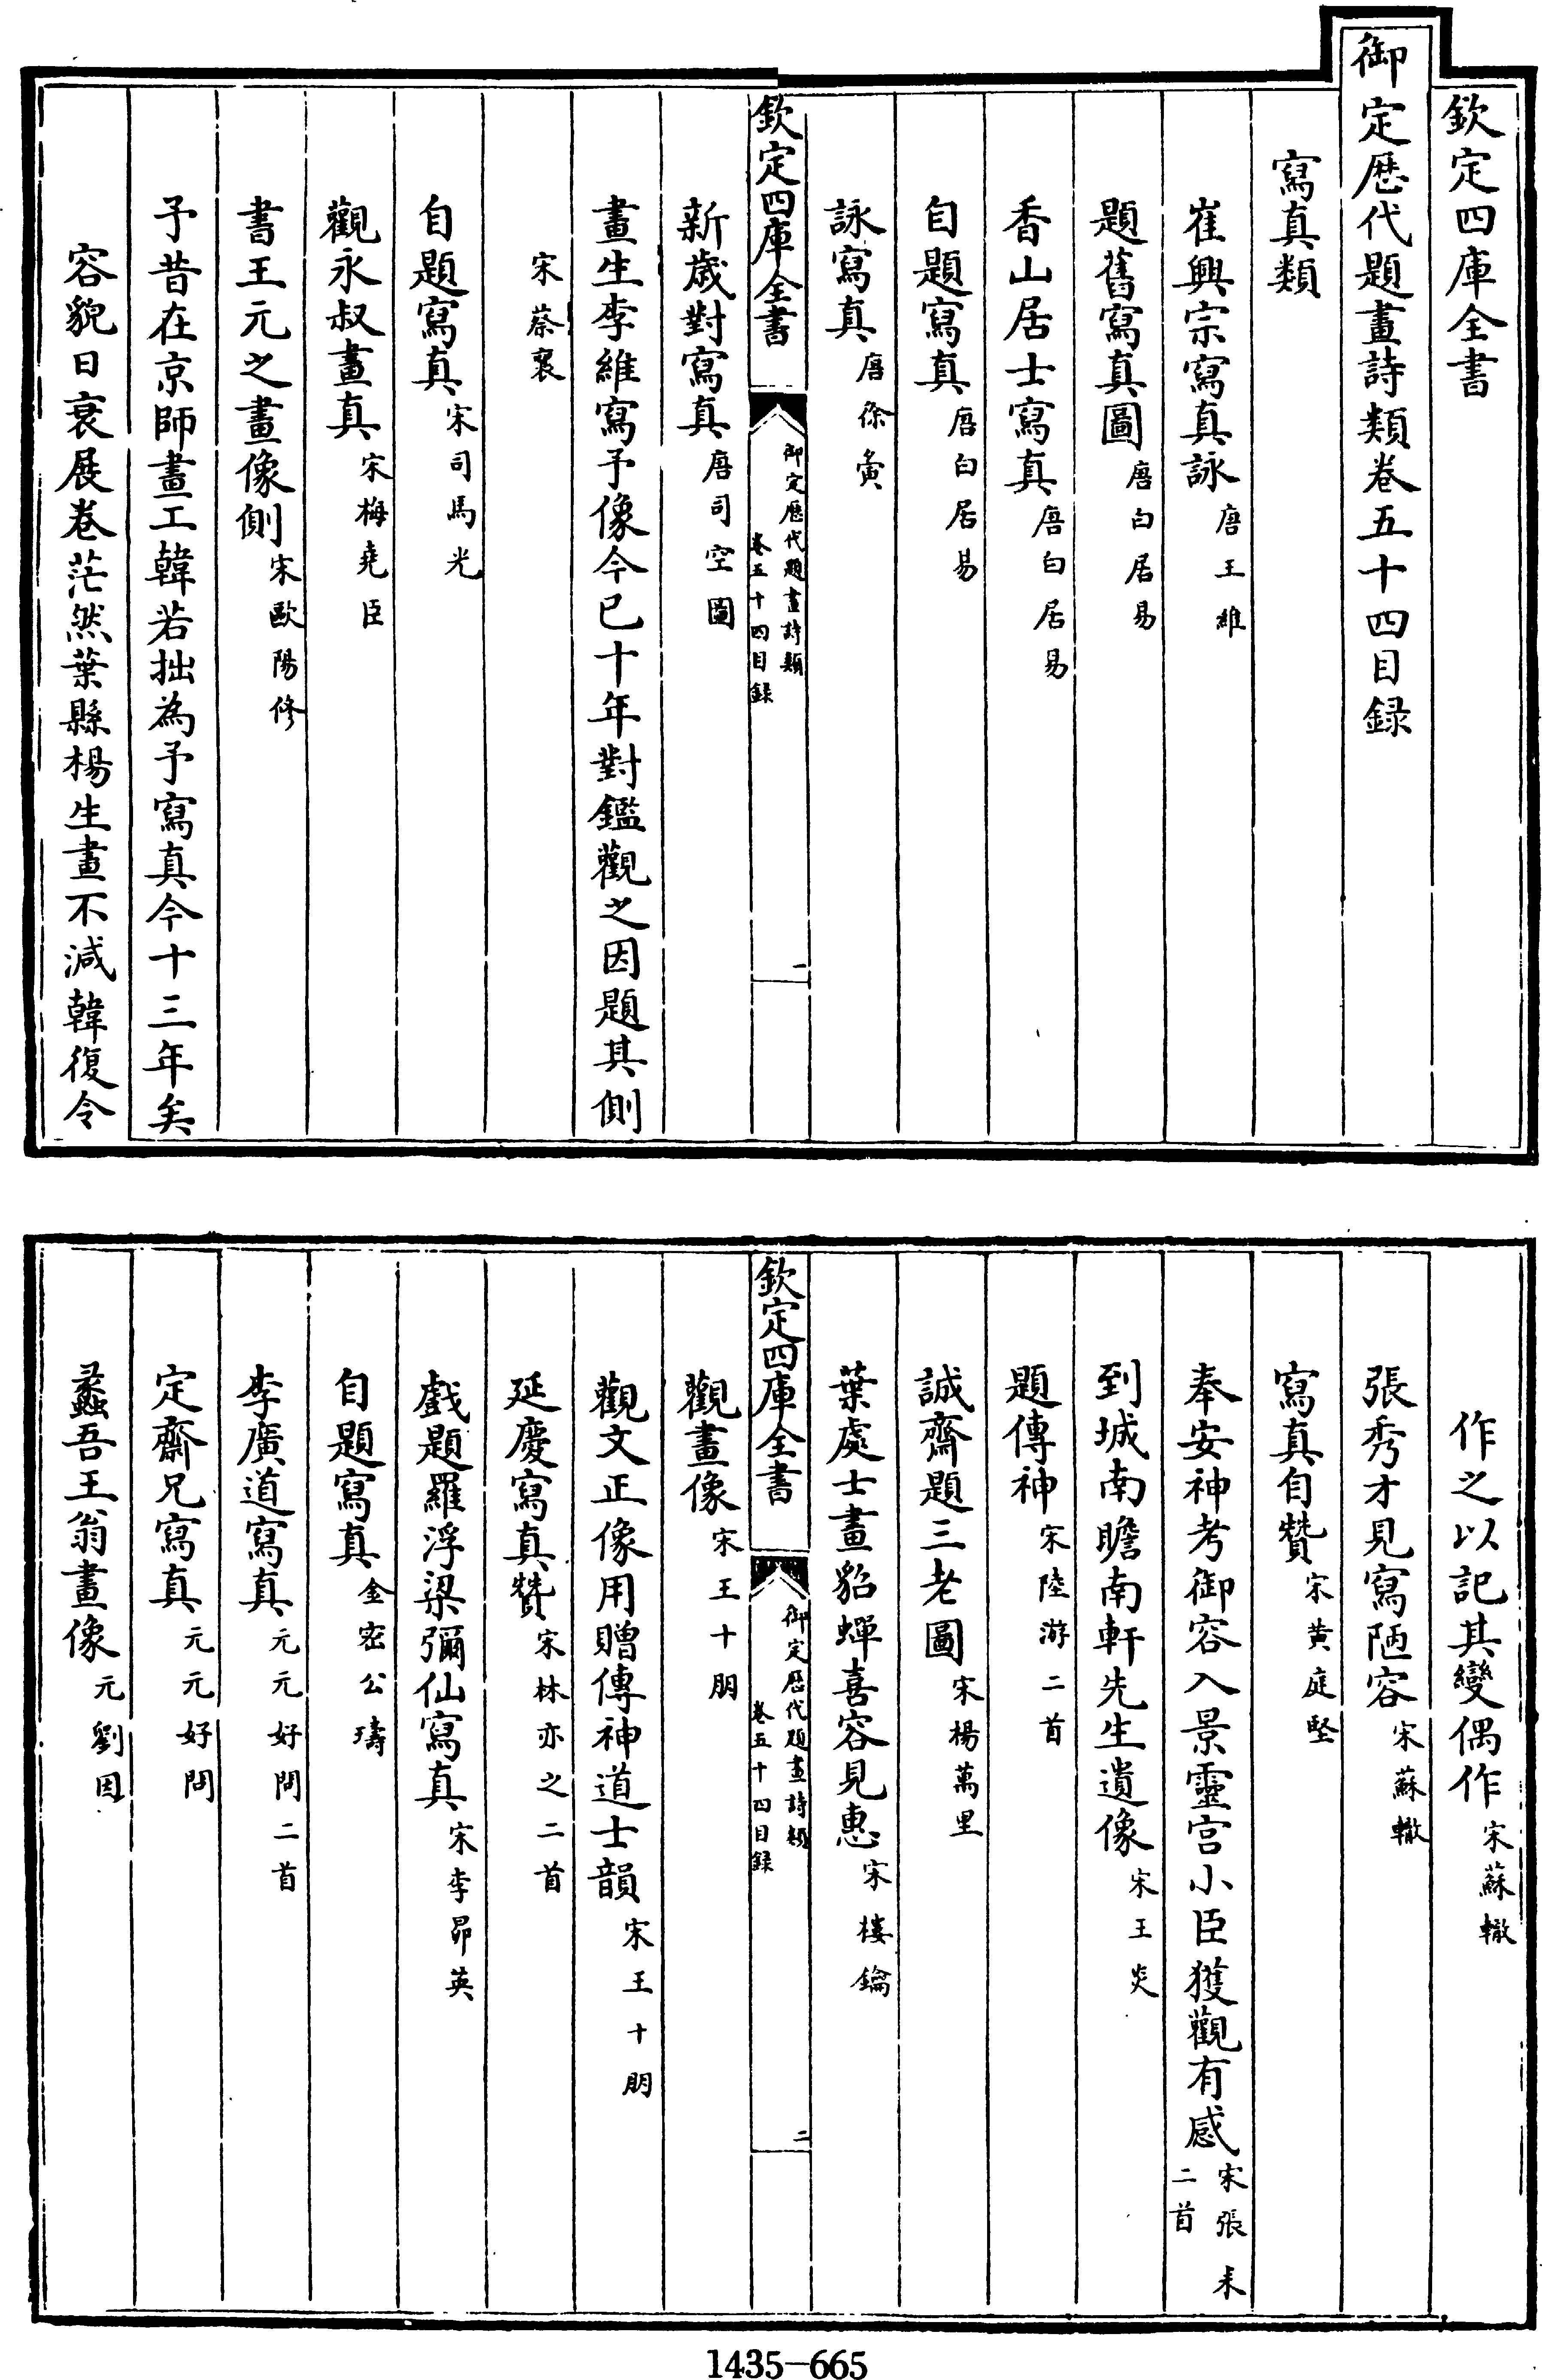 欽定四庫全書
御定歷代題畫詩類卷五十四目録
寫真類
崔興宗寫真詠唐王維
題舊寫真圖唐白居易
香山居士寫真唐白居易
自題寫真唐白居易
詠寫真唐徐夤
欽定四庫全書
御定歷代題畫詩類
卷五十四目録
一
新歲對寫真唐司空圖
畫生李維寫予像今已十年對鑑觀之因題其側
宋蔡襄
自題寫真宋司馬光
觀永叔畫真宋梅堯臣
書王元之畫像側宋歐陽修
予昔在京師畫工韓若拙為予寫真今十三年矣
容貌日衰展卷茫然葉縣楊生畫不減韓復令
作之以記其變偶作宋蘇轍
張秀才見寫陋容宋蘇轍
寫真自贊宋黃庭堅
奉安神考御容入景靈宫小臣獲觀有感宋張耒
二首
到城南瞻南軒先生遺像宋王炎
題傳神宋陸游二首
誠齋題三老圖宋楊萬里
葉處士畫貂蟬喜容見惠宋樓鑰
欽定四庫全書
御定歷代題畫詩類
卷五十四目録
二
觀畫像宋王十朋
觀文正像用贈傳神道士韻宋王十朋
延慶寫真贊宋林亦之二首
戲題羅浮梁彌仙寫真宋李昴英
自題寫真金密公璹
李廣道寫真元元好問二首
定齋兄寫真元元好問
蠡吾王翁畫像元劉因
1435-665